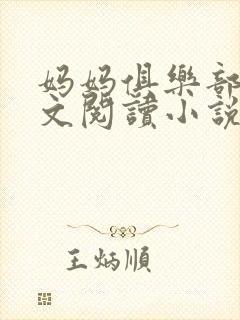 妈妈俱樂部
文閱讀小說
王炳順